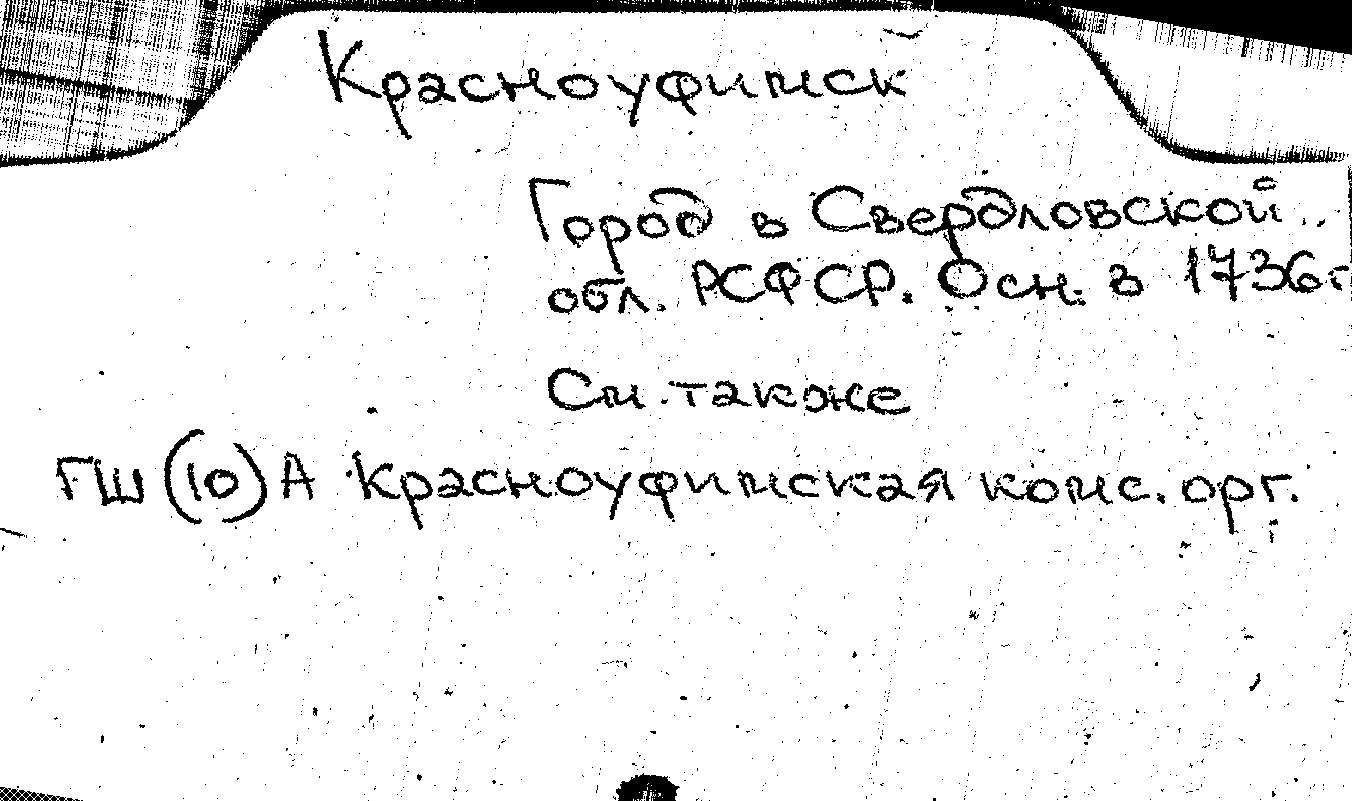 Красноуфимск
Город в Свердловской
обл. РСФСР. Осн. в 1736г
См. также
ГШ(10)А Красноуфимская комс. орг.